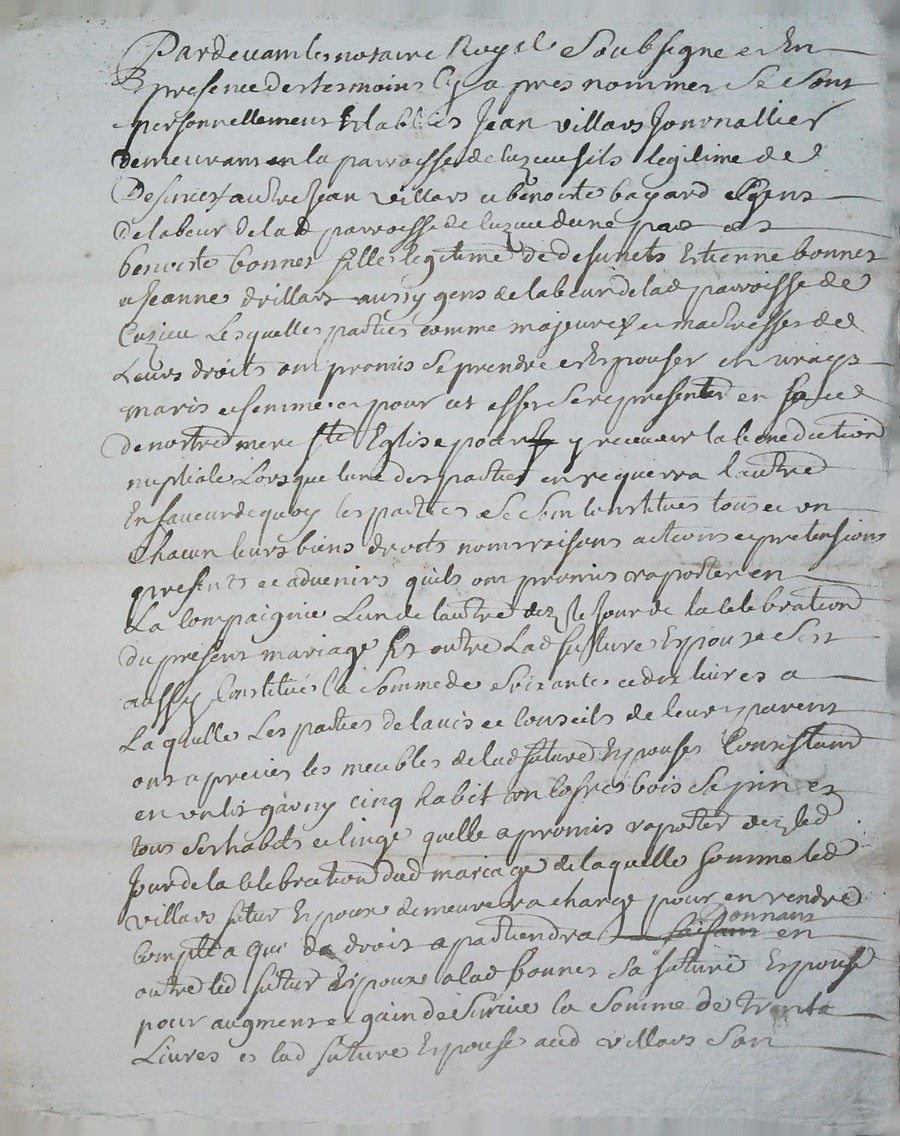 Pardevant le notaire Royal Soubsigné et En
presence des tesmoins Cy apres nommes Se sont
personnellement Establies Jean villars Journallier
demeurant en la parroisse de cuzieu fils legitime de
Defunct autre Jean villars et benoite bayard gens
de labeur de lad parroisse de cuzieu dune part et
benoite bonnet fille legitime de defunts Estienne bonnet
et Jeanne drillars aussy gens de labeur de lad parroisse de
Cuzieu Lesquelles parties comme majeures et maitresses de
Leurs droits ont promis Se prendre et Espouser en vrays
maris et femme et pour cet effet se representer en face
de nostre mere Ste Eglise pour y recevoir la benediction
nuptiale Lorsque lune des parties en requerra lautre
En faveur de quoy les parties se sont Constitués tous et un
chacun leurs biens droits noms raisons actions et pretensions
presents et advenirs quils ont promis raporter en
La Compaignie Lun de lautre dez le Jour de la Celebration
du present mariage Et outre Lad future Espouse sest
aussy Constitué la Somme de Soixante et dix livres a
La quelle Les parties de lavis et Conseils de leurs parents
ont apreciés les meubles de lad future Espouse Consistant
en un lit garny cinq habit un cofre bois de pin et
tous ses habits et linge quelle a promis raporter dez led
Jour de la Celebration dud mariage de laquelle somme led
villars futur Espoux demeurera chargé pour en rendre
Compte a qui de droit apartiendra donnant en
outre led futur Espoux a lad bonnet sa future Espouse
pour augment et gain de Survie la Somme de trente
Livres et lad future Espouse aud villars Son